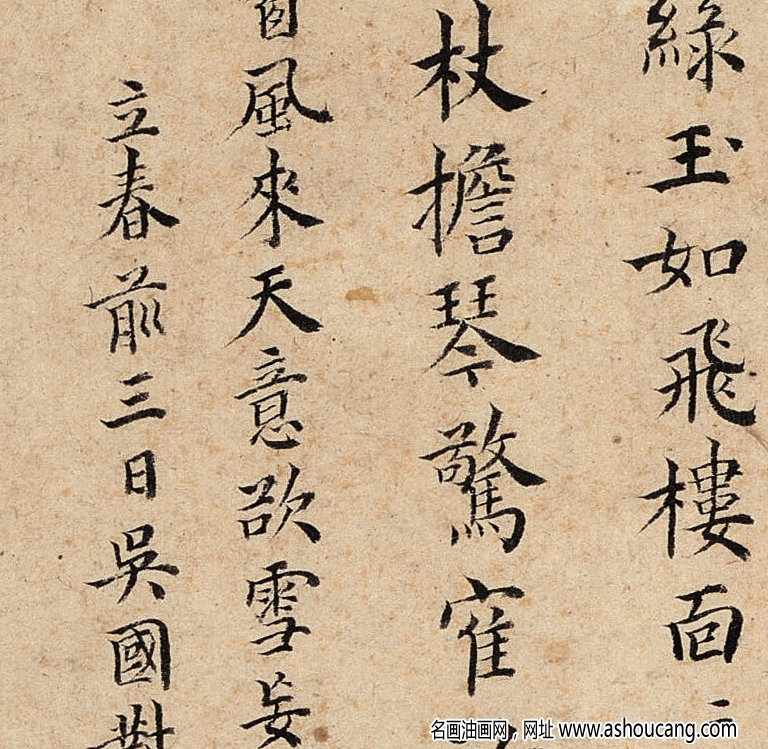 綠玉如飛樓面
杖擔琴驚寉
風來天意欲雪妄
立春前三日吳國對
名画油画网，网址 www.ashoucang.com